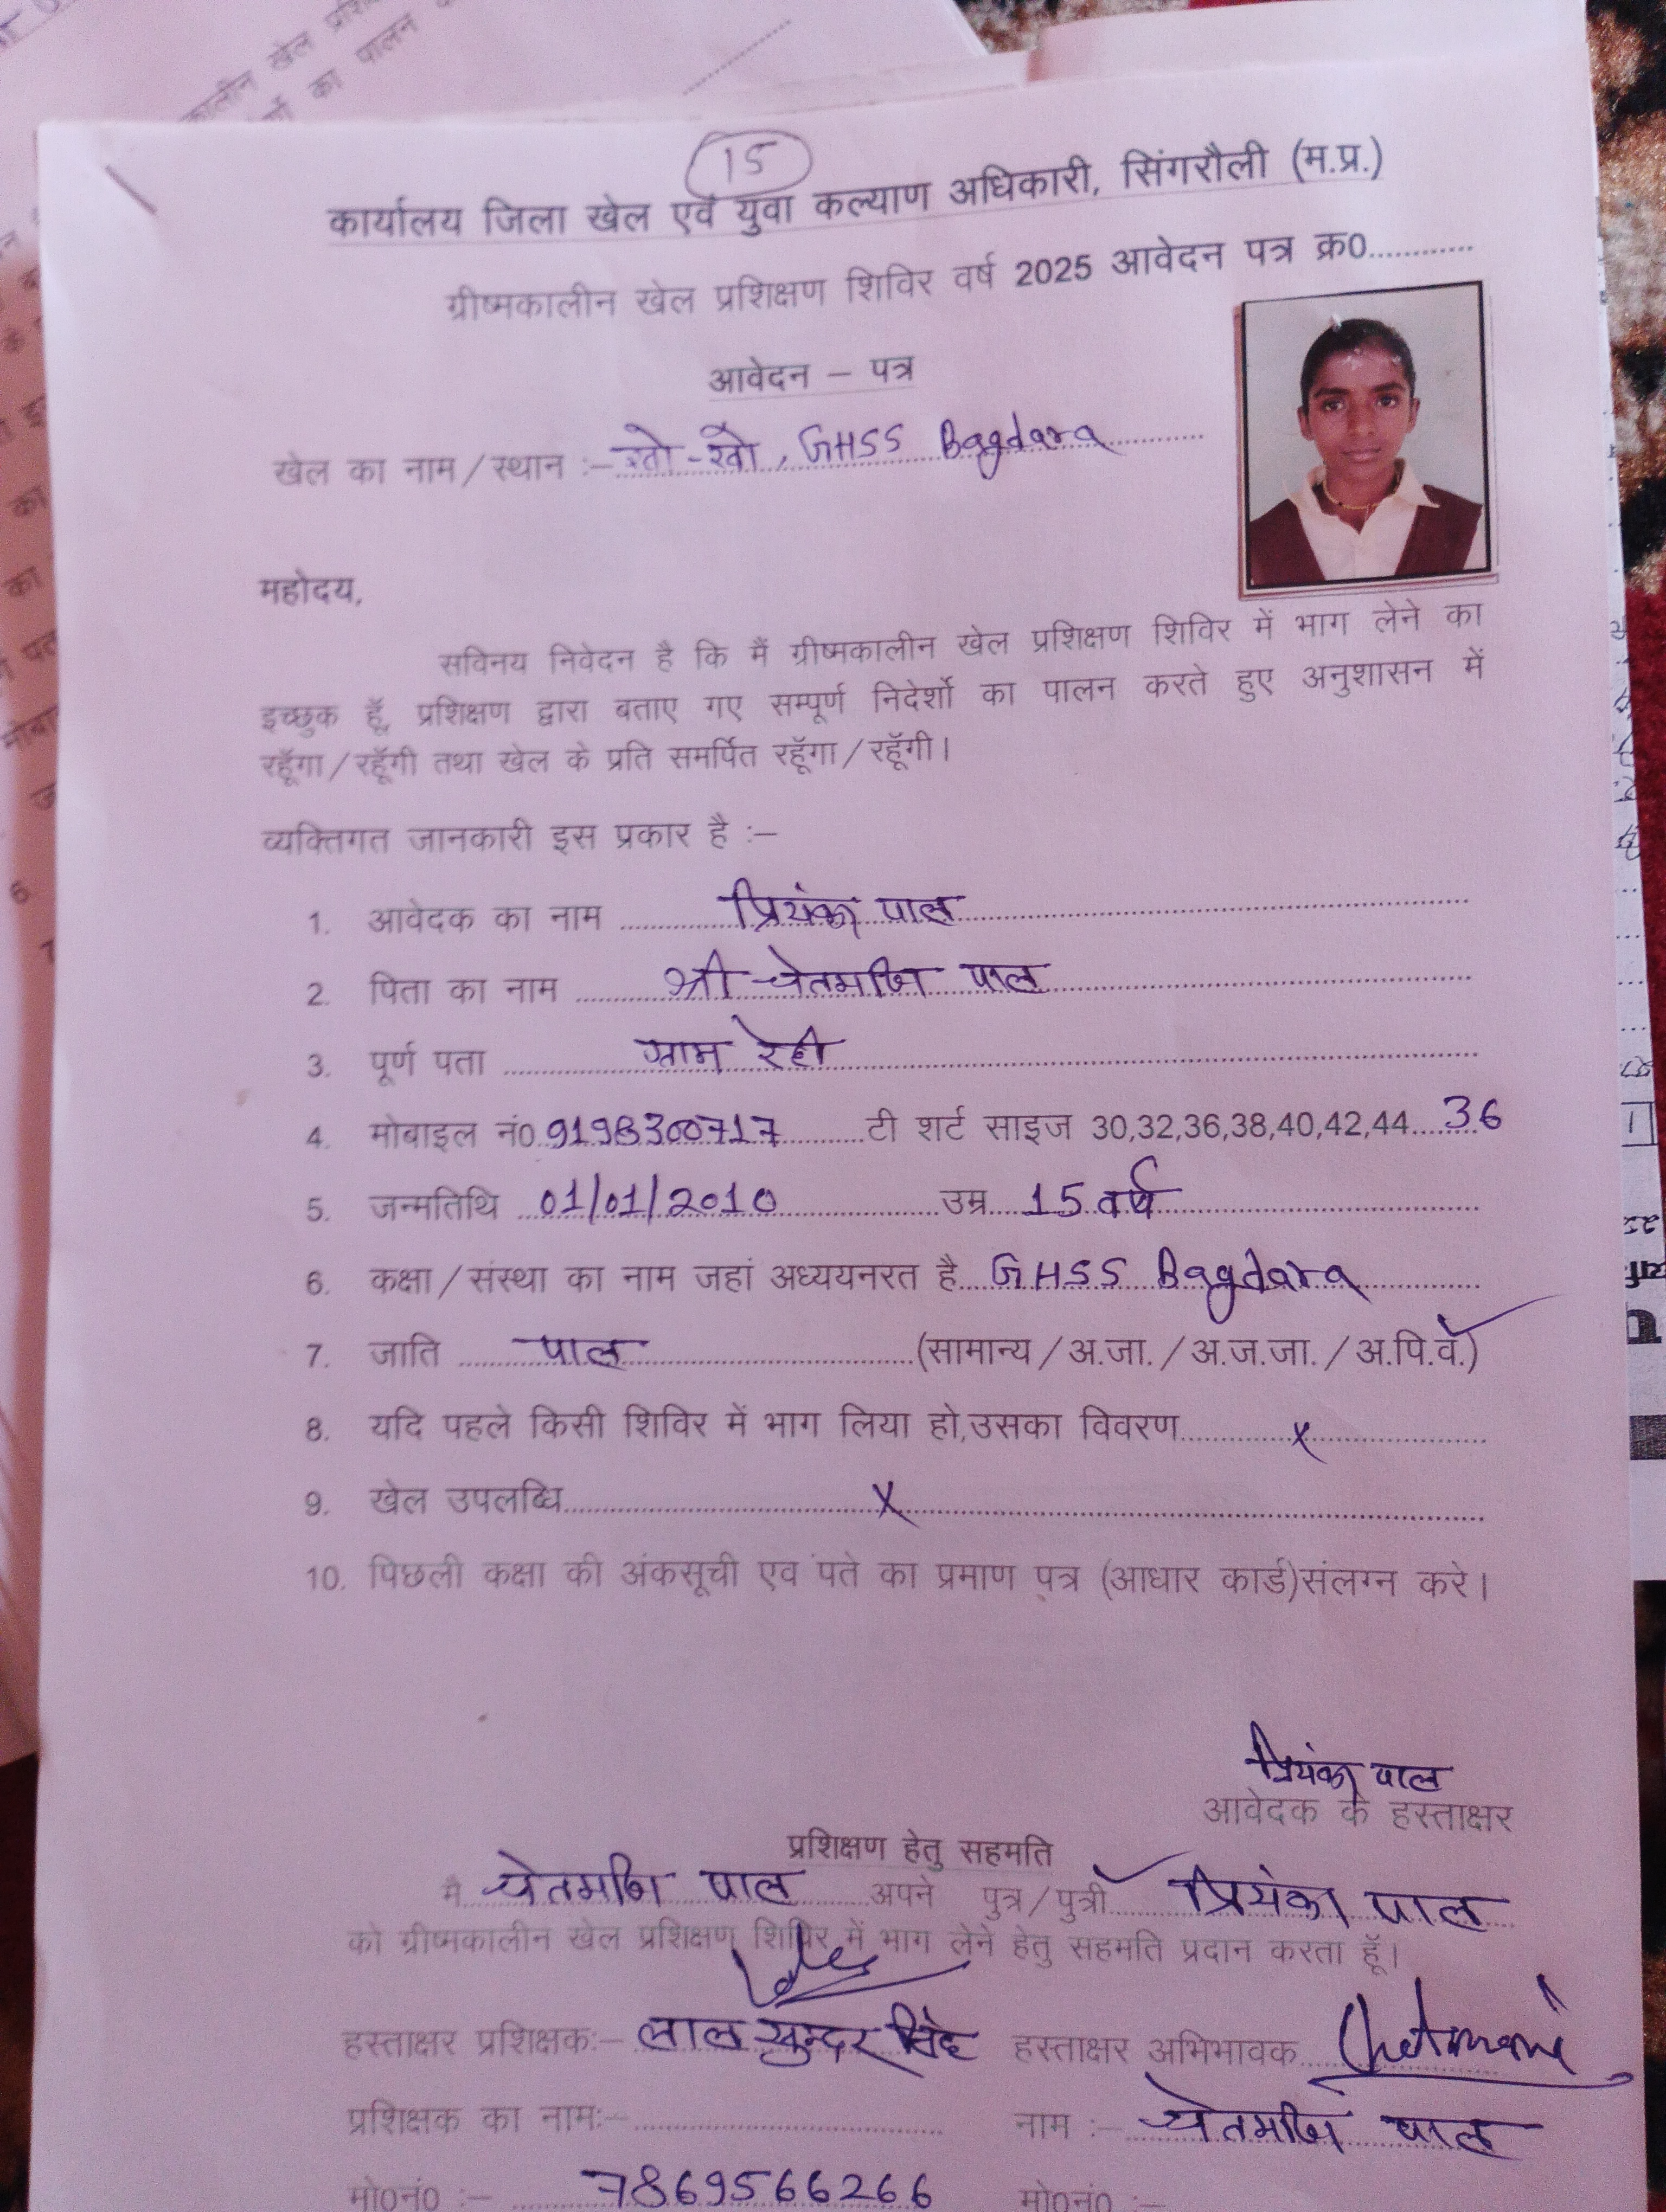 15
कार्यालय जिला खेल एवं युवा कल्याण अधिकारी, सिंगरौली (म.प्र.)
ग्रीष्मकालीन खेल प्रशिक्षण शिविर वर्ष 2025 आवेदन पत्र क्र0............
आवेदन – पत्र
खेल का नाम/स्थान :– खो-खो, GHSS Bagdara
महोदय,
सविनय निवेदन है कि मैं ग्रीष्मकालीन खेल प्रशिक्षण शिविर में भाग लेने का
इच्छुक हूॅ, प्रशिक्षण द्वारा बताए गए सम्पूर्ण निदेर्शो का पालन करते हुए अनुशासन में
रहूॅगा/रहूॅगी तथा खेल के प्रति समर्पित रहूॅगा/रहूॅगी।
व्यक्तिगत जानकारी इस प्रकार है :–
1. आवेदक का नाम प्रियंका पाल
2. पिता का नाम श्री चेतमणि पाल
3. पूर्ण पता ग्राम रेही
4. मोबाइल नं0 टी शर्ट साइज 30,32,36,38,40,42,44 36
5. जन्मतिथि 01/01/2010 उम्र 15 वर्ष
6. कक्षा/संस्था का नाम जहां अध्ययनरत है GHSS Bagdara
7. जाति पाल (सामान्य/अ.जा./अ.ज.जा./अ.पि.वं.)
8. यदि पहले किसी शिविर में भाग लिया हो,उसका विवरण x
9. खेल उपलब्धि x
10. पिछली कक्षा की अंकसूची एव पते का प्रमाण पत्र (आधार कार्ड)संलग्न करे।
प्रियंका पाल
आवेदक के हस्ताक्षर
प्रशिक्षण हेतु सहमति
मै चेतमणि पाल अपने पुत्र/पुत्री प्रियंका पाल
को ग्रीष्मकालीन खेल प्रशिक्षण शिविर में भाग लेने हेतु सहमति प्रदान करता हूॅ।
हस्ताक्षर प्रशिक्षक:– लाल सुन्दर सिंह हस्ताक्षर अभिभावक Chetmani
प्रशिक्षक का नाम:– नाम :– चेतमणि पाल
मो0नं0 :– 7869566266 मो0नं0 :–